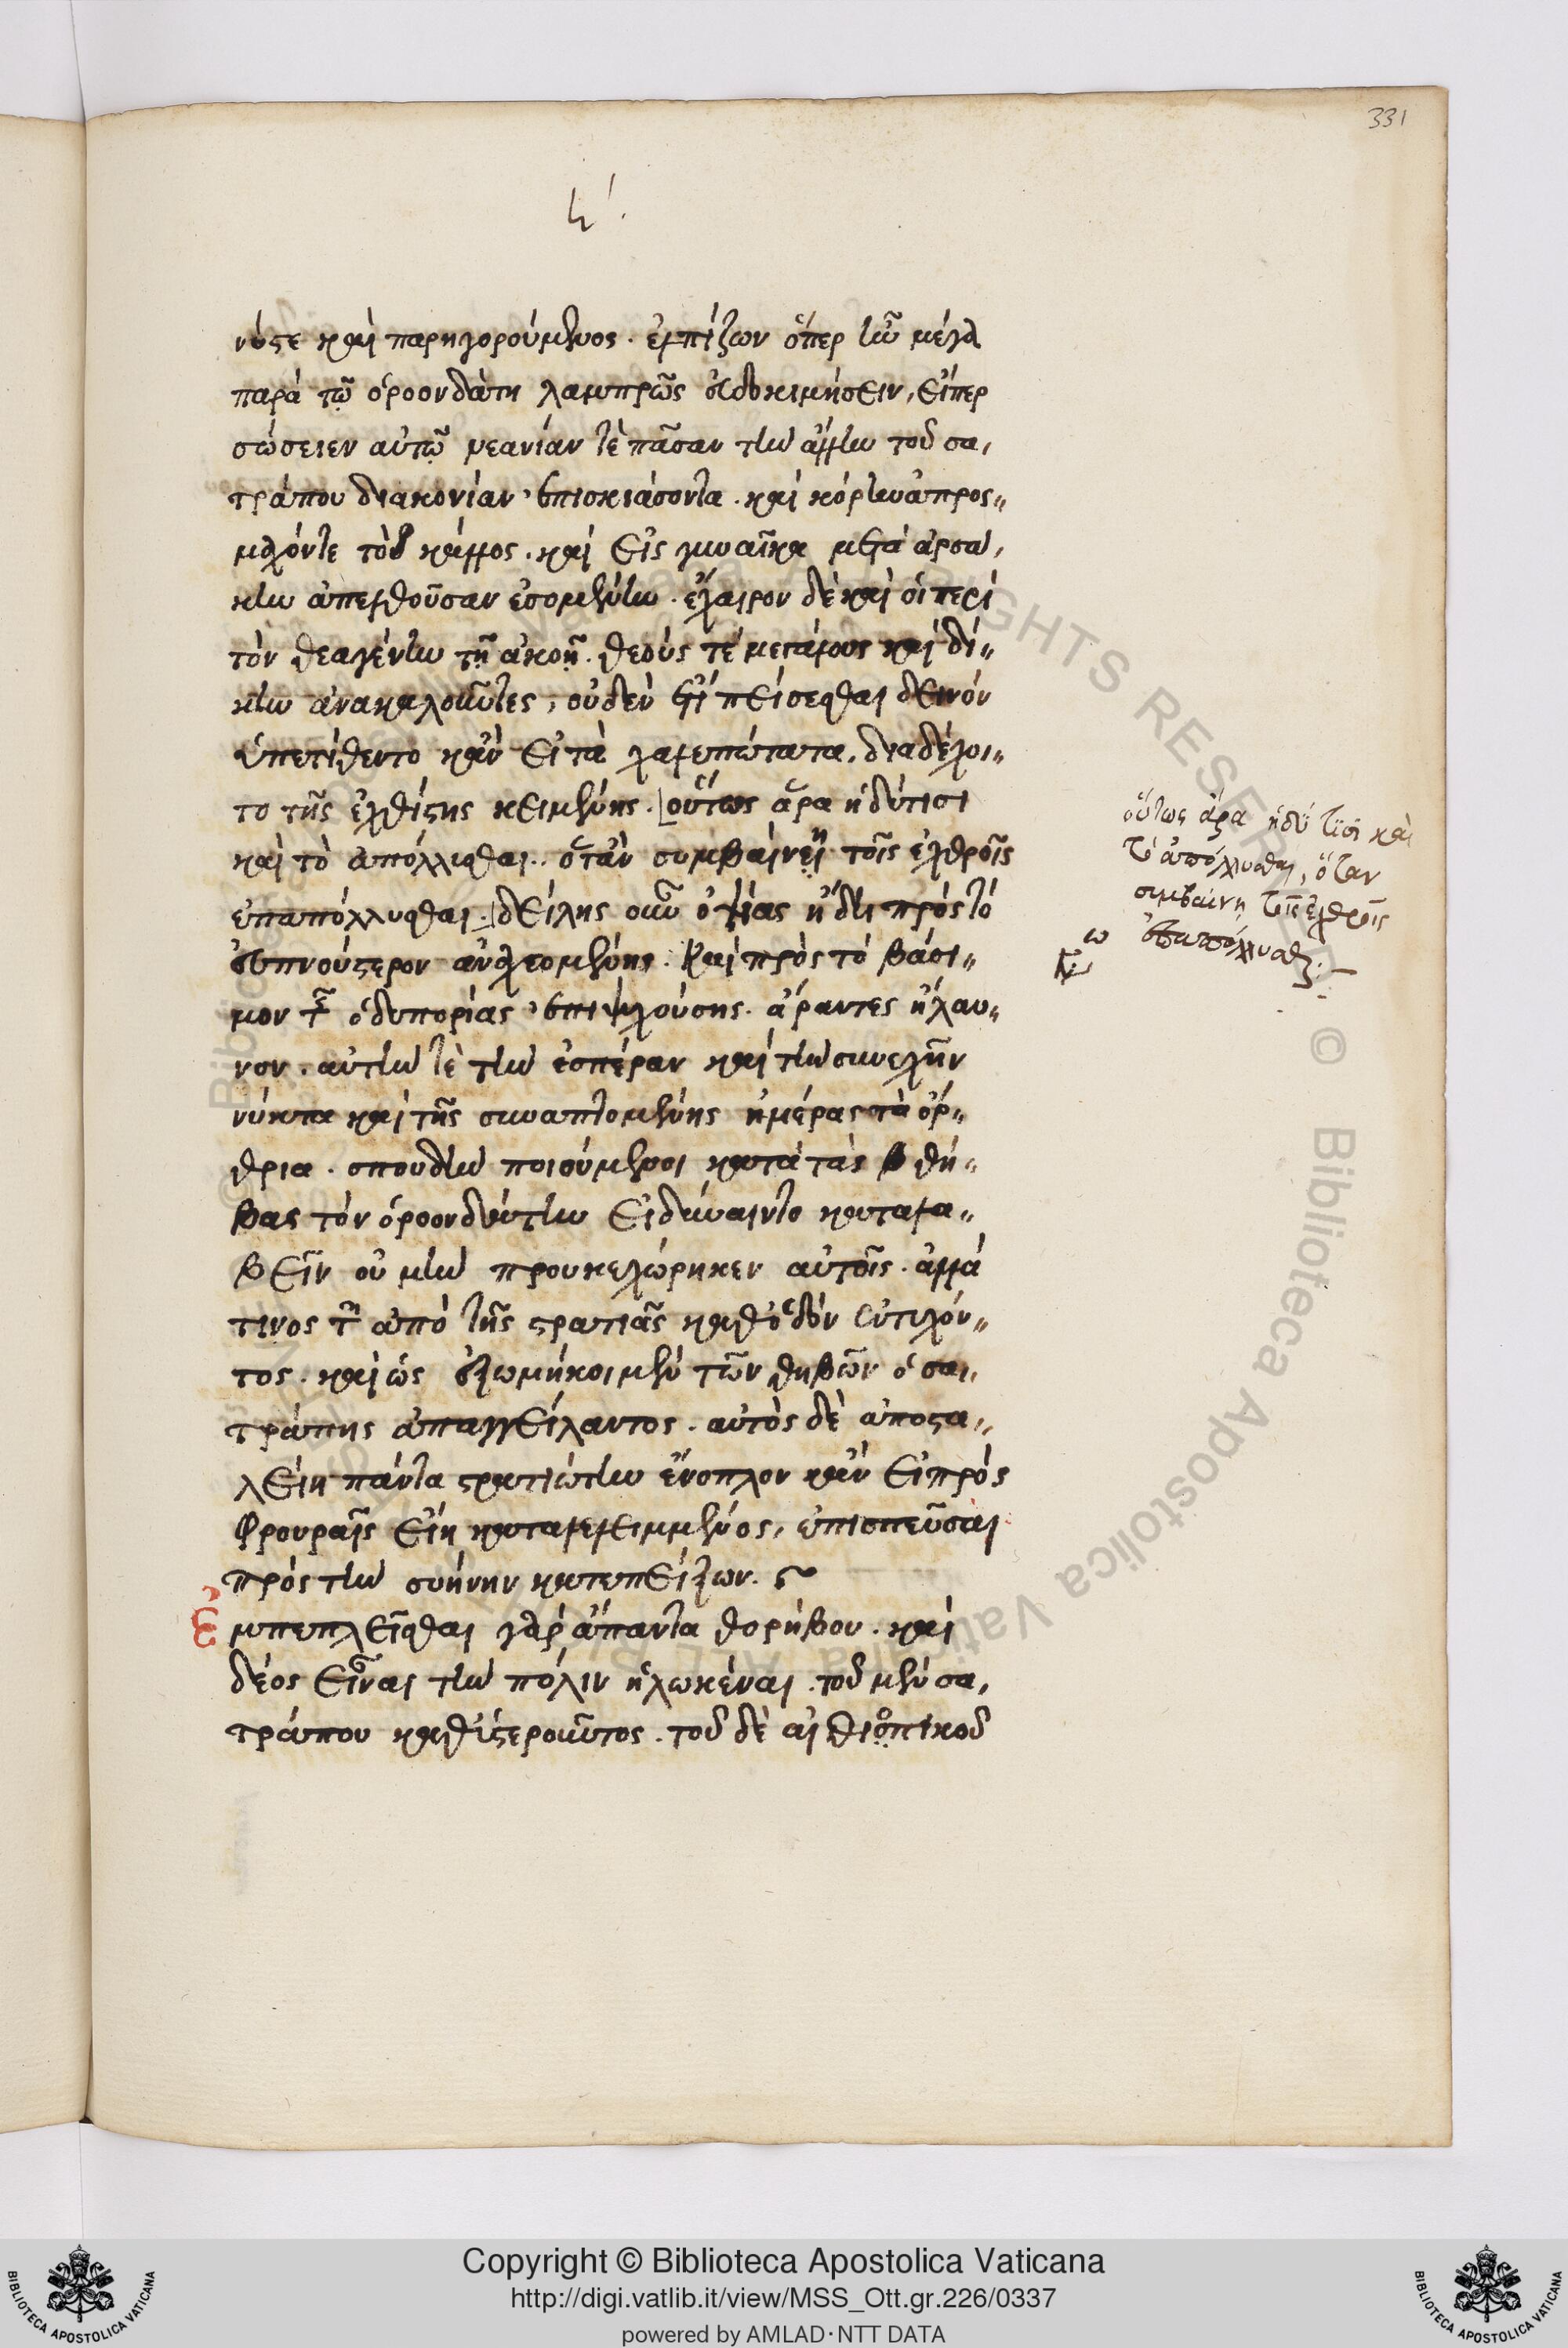 331
η΄.
νός τε καὶ παρηγορούμενος. ἐλπίζων ὅπερ ἦν μέγα
παρὰ τῷ ὀροονδάτη λαμπρῶς εὐδοκιμήσειν, εἴπερ
σώσειεν αὐτῷ νεανίαν τὲ πᾶσαν τὴν ἄλλην τοῦ σα,
τράπου διακονίαν ἐπισκιάσοντα. καὶ κόρην ἀπροσ„
μάχόν τε τὸ κάλλος. καὶ εἰς γυναῖκα μετὰ ἀρσά,
κην ἀπελθοῦσαν ἐσομένην. ἔχαιρον δὲ καὶ οἱ περὶ
τὸν θεαγένην τῇ ἀκοῇ. θεούς τὲ μεγάλους καὶ δί„
κην ἀνακαλοῦντες, οὐδὲν ἔτι πείσεσθαι δεινὸν
ὑπετίθεντο κἂν εἰ τὰ χαλεπώτατα, διαδέχοι„
το τῆς ἐχθίστης κειμένης. οὕτως ἄρα ἡδύ τισι
καὶ τὸ ἀπόλλυσθαι. ὅταν συμβαίνῃ τοῖς ἐχθροῖς
ἐπαπόλλυσθαι. δείλης οὖν ὀψίας ἤδη πρὸς τὸ
εὐπνούστερον ἀνα χεομένης. καὶ πρὸς τὸ βάσι„
μον τῆς ὁδυπορίας ἐπιψυχούσης. ἄραντες ἤλαυ„
νον. αὐτήν τὲ τὴν ἑσπέραν καὶ τὴν συνεχῆν
νύκτα καὶ τῆς συναπτομένης ἡμέρας τὰ ὄρ„
θρια. σπουδὴν ποιούμενοι κατὰ τὰς θή„
βας τὸν ὀροονδάτην εἰ δύναιντο καταλα„
βεῖν οὐ μὴν προυκεχώρηκεν αὐτοῖς. ἀλλά
τινος τῶν ἀπὸ τῆς στρατιᾶς καθ' ὁδὸν ἐντυχόν„
τος. καὶ ὡς ἐξωρμήκοι μὲν τῶν θηβῶν ὁ σα,
τράπης ἀπαγγείλαντος. αὐτὸς δὲ ἀποστα„
λείη πάντα στρατιώτην ἔνοπλον κἂν εἰ πρὸς
φρουραῖς εἴη καταλελειμμένος, ἐπισπεῦσαι
πρὸς τὴν συήνην κατεπείγων.
Ἐμπεπλεῖσθαι γὰρ ἅπαντα θορύβου. καὶ
δέος εἶναι τὴν πόλιν ἡλωκέναι. τοῦ μὲν σα,
τράπου καθυστεροῦντος. τοῦ δὲ αἰθιοπικοῦ
οὕτως ἄρα ἡδύ τισι καὶ
τὸ ἀπόλλυσθαι, ὅταν
συμβαίνῃ τοῖς ἐχθροῖς
ἐπαπόλλυσθαι.
Copyright © Biblioteca Apostolica Vaticana
http://digi.vatlib.it/view/MSS_Ott.gr.226/0337
powered by AMLAD·NTT DATA